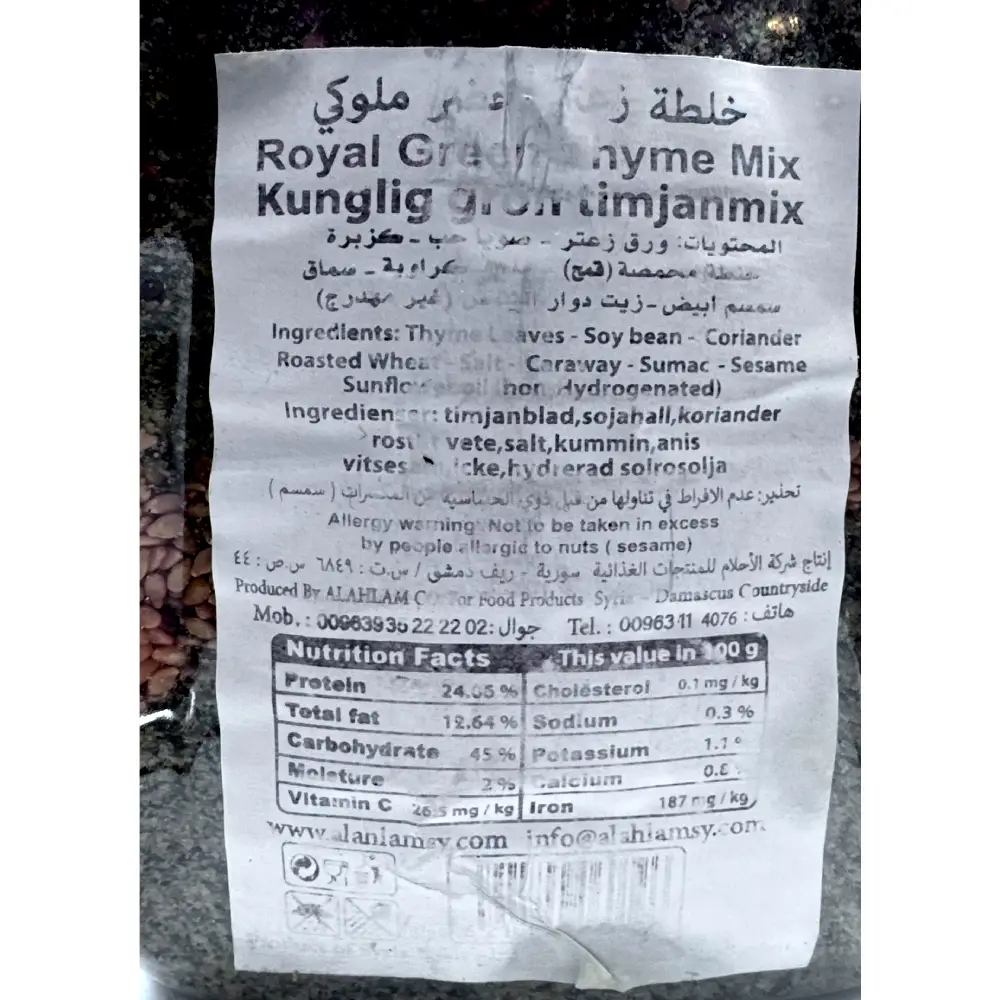 خلطة ملوكي
Royal Green Thyme Mix
Kunglig grön timjanmix
المحتويات: ورق زعتر - صويا حب - كزبرة
محمصة (قمح) كراوية - سماق
سمسم ابيض - زيت دوار (غير مهدرج)
Ingredients: Thyme Leaves - Soy bean - Coriander
Roasted Wheat - Salt - Caraway - Sumac - Sesame
Sunflower oil (non Hydrogenated)
Ingredienser: timjanblad,sojahall,koriander
vete,salt,kummin,anis
icke,hydrerad solrosolja
تحذير: عدم الافراط في تناولها من قبل ذوي الحساسية من المكسرات ( سمسم )
Allergy warning: Not to be taken in excess
by people allergic to nuts ( sesame)
إنتاج شركة الأحلام للمنتجات الغذائية سورية - ريف دمشق / س.ت : ٦٨٤٩ س.ص : ٤٤
Produced By ALAHLAM CO For Food Products Syria - Damascus Countryside
Mob. : 0096393 22 22 02: جوال Tel. : 00963 11 4076 : هاتف
Nutrition Facts This value in 100 g
Protein % Cholesterol 0.1 mg / kg
Total fat 12.64 % Sodium 0.3 %
Carbohydrate 45 % Potassium
Moisture 2 % Calcium
Vitamin C 26.5 mg / kg Iron 187 mg / kg
info@alahlamsy.com